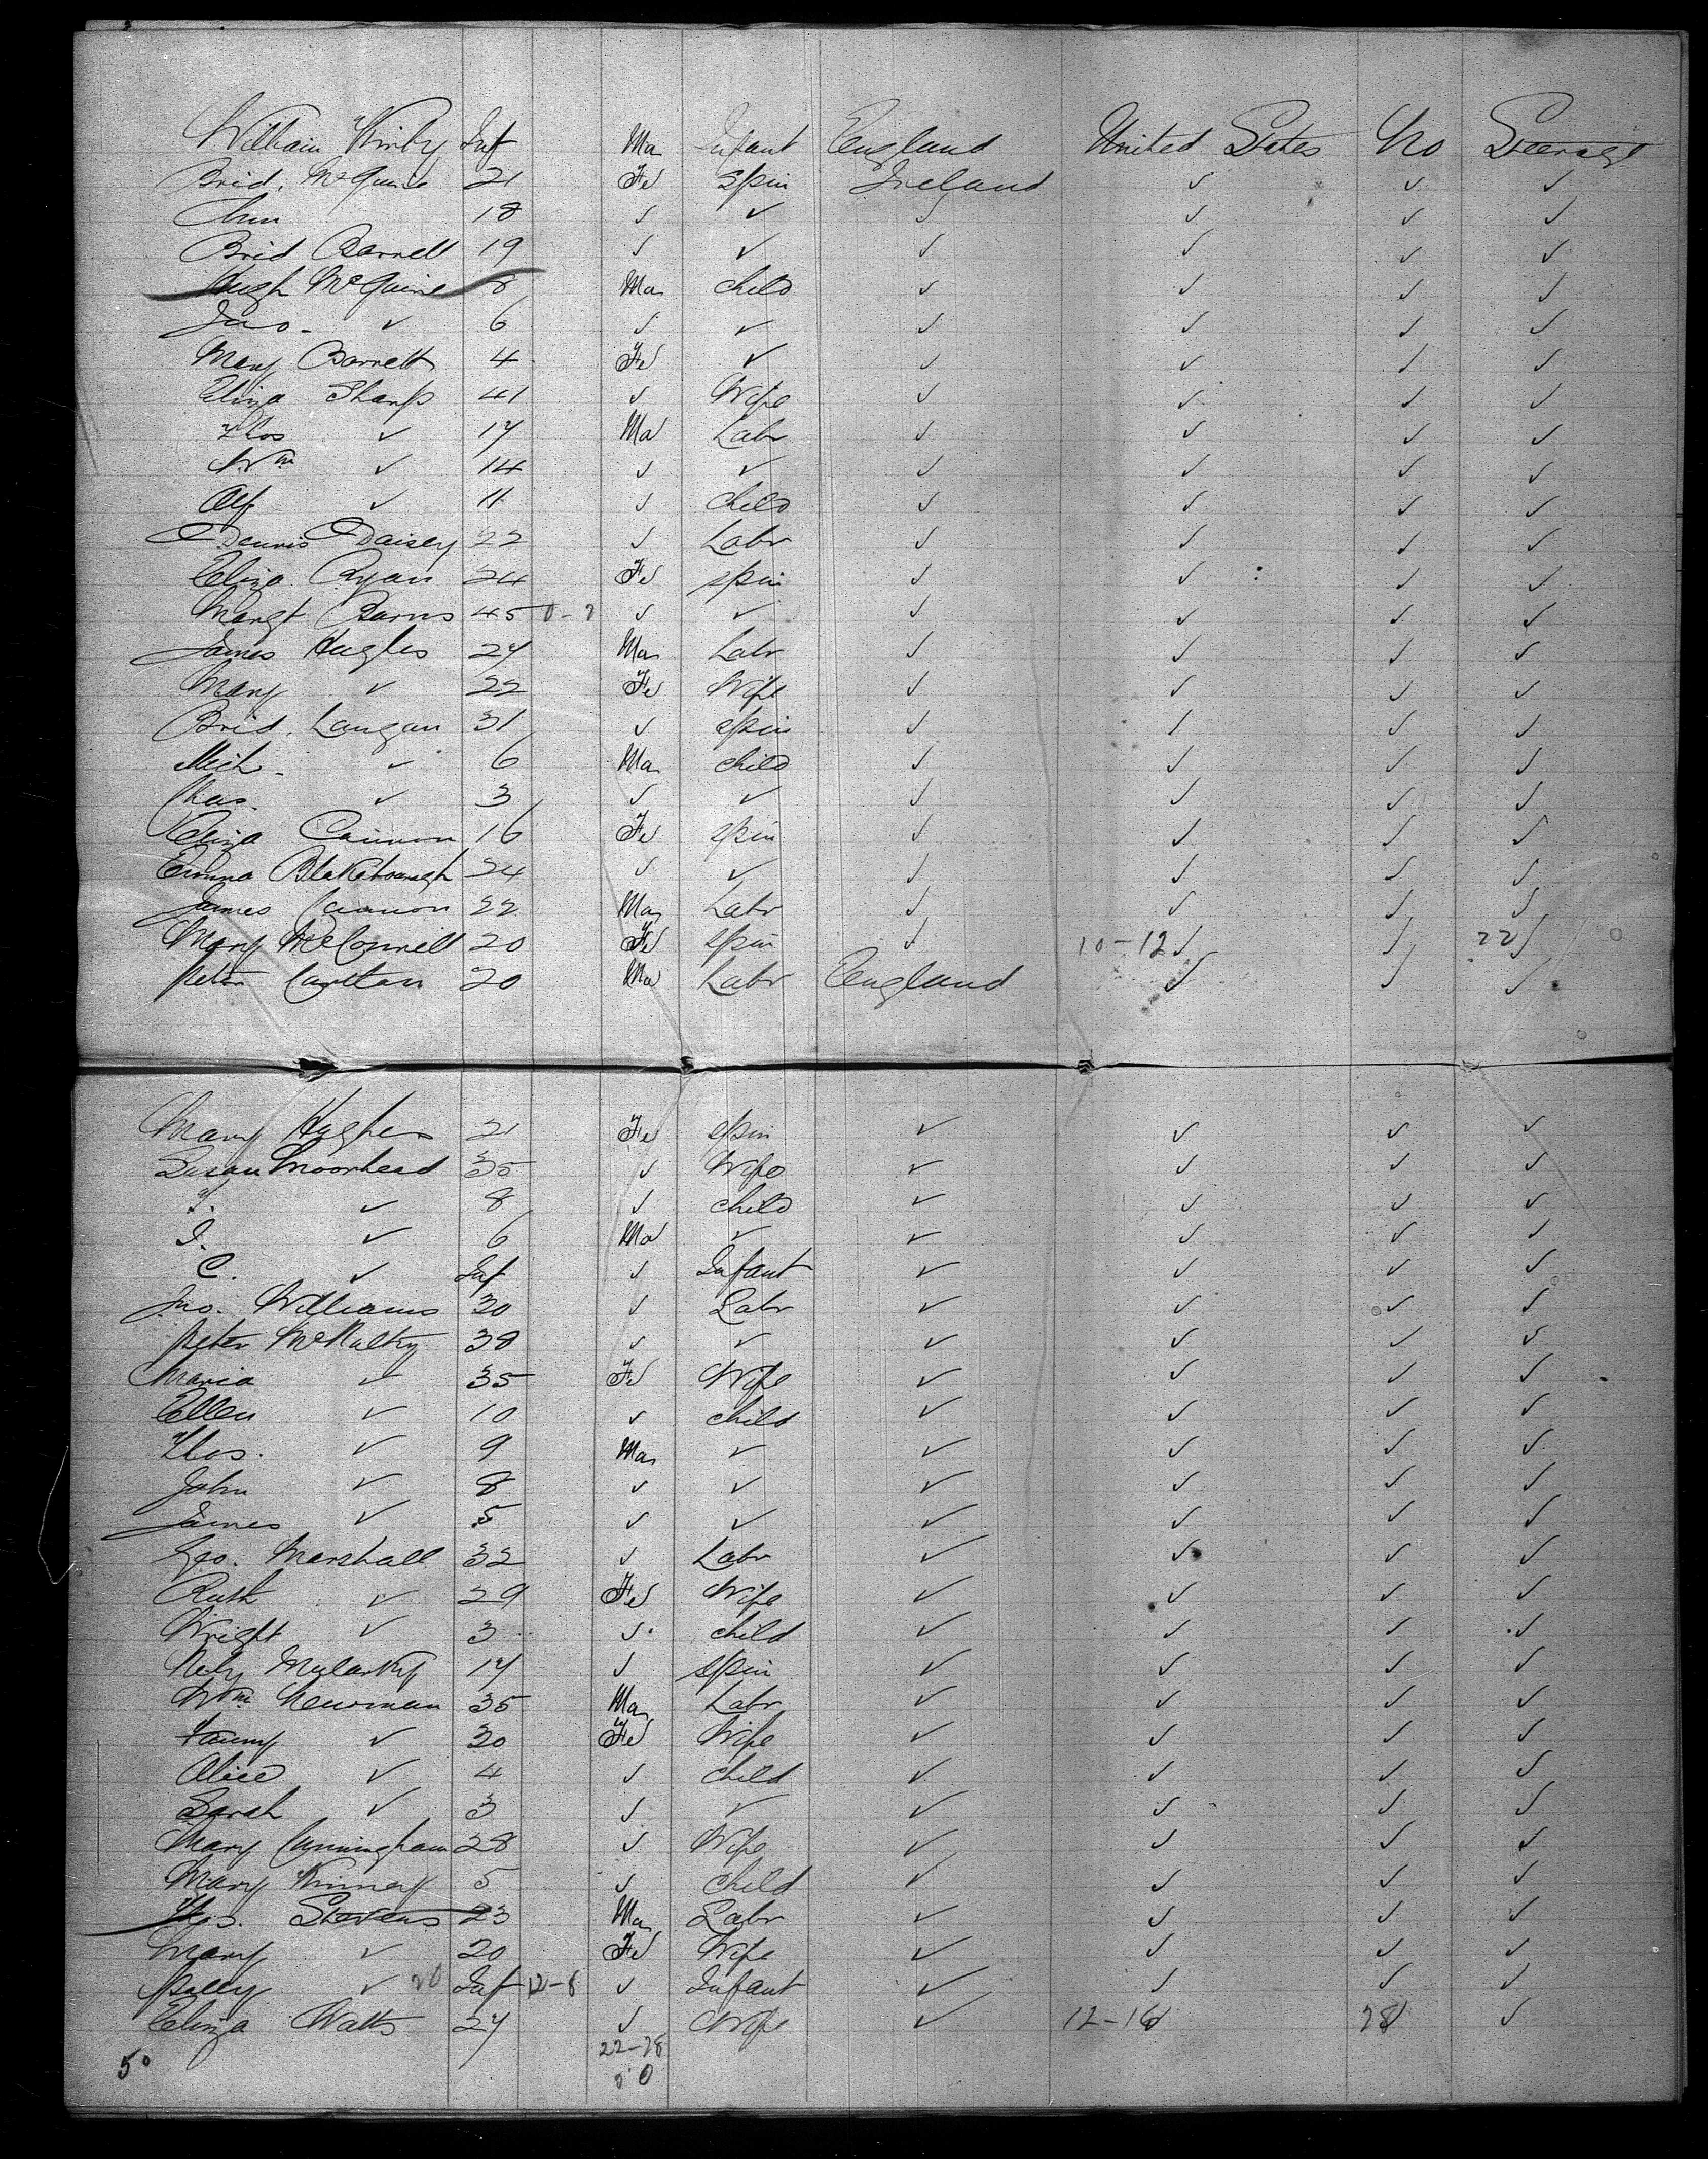 William Kirby Inf Ma Infant England United States No Steerage
Brid. McGuire 21 Fe Spin Ireland ✓ ✓ ✓
Ann 18 ✓ ✓ ✓ ✓ ✓ ✓
Brid Barrett 19 ✓ ✓ ✓ ✓ ✓ ✓
Hugh McGuire 8 Ma child ✓ ✓ ✓ ✓
Jno. ✓ 6 ✓ ✓ ✓ ✓ ✓ ✓
Mary Barrett 4 Fe ✓ ✓ ✓ ✓ ✓
Eliza Sharp 41 ✓ Wife ✓ ✓ ✓ ✓
Thos ✓ 17 Ma Labr ✓ ✓ ✓ ✓
Wm ✓ 14 ✓ ✓ ✓ ✓ ✓ ✓
Alf ✓ 11 ✓ child ✓ ✓ ✓ ✓
Dennis Daisey 22 ✓ Labr ✓ ✓ ✓ ✓
Eliza Ryan 24 Fe spin ✓ ✓ ✓ ✓
Margt Barns 45 ✓ ✓ ✓ ✓ ✓ ✓
James Hughes 27 Ma Labr ✓ ✓ ✓ ✓
Mary ✓ 22 Fe Wife ✓ ✓ ✓ ✓
Brid. Langan 31 ✓ spin ✓ ✓ ✓ ✓
Mich. ✓ 6 Ma child ✓ ✓ ✓ ✓
Chas. ✓ 3 ✓ ✓ ✓ ✓ ✓ ✓
Eliza Cannon 16 Fe spin ✓ ✓ ✓ ✓
Emma Blakebourgh 24 ✓ ✓ ✓ ✓ ✓ ✓
James Cannon 22 Ma Labr ✓ ✓ ✓ ✓
Mary McConnell 20 Fe spin ✓ 10-12 ✓ ✓ 22 ✓
Peter Carltan 20 Ma Labr England ✓ ✓ ✓
Mary Hughes 21 Fe spin ✓ ✓ ✓ ✓
Susan Moorhead 35 ✓ Wife ✓ ✓ ✓ ✓
T. ✓ 8 ✓ child ✓ ✓ ✓ ✓
I. ✓ 6 Ma ✓ ✓ ✓ ✓ ✓
C. ✓ Inf ✓ Infant ✓ ✓ ✓ ✓
Jno. Williams 30 ✓ Labr ✓ ✓ ✓ ✓
Peter McNulty 38 ✓ ✓ ✓ ✓ ✓ ✓
Maria ✓ 35 Fe Wife ✓ ✓ ✓ ✓
Ellen ✓ 10 ✓ child ✓ ✓ ✓ ✓
Thos. ✓ 9 Ma ✓ ✓ ✓ ✓ ✓
John ✓ 8 ✓ ✓ ✓ ✓ ✓ ✓
James ✓ 5 ✓ ✓ ✓ ✓ ✓ ✓
Geo. Marshall 32 ✓ Labr ✓ ✓ ✓ ✓
Ruth ✓ 29 Fe Wife ✓ ✓ ✓ ✓
Wright ✓ 3 ✓ child ✓ ✓ ✓ ✓
Mularky 17 ✓ spin ✓ ✓ ✓ ✓
Wm Newman 35 Ma Labr ✓ ✓ ✓ ✓
Fanny ✓ 30 Fe Wife ✓ ✓ ✓ ✓
Alice ✓ 4 ✓ child ✓ ✓ ✓ ✓
Sarah ✓ 3 ✓ ✓ ✓ ✓ ✓ ✓
Mary Cunningham 28 ✓ Wife ✓ ✓ ✓ ✓
Mary Kinney 5 ✓ child ✓ ✓ ✓ ✓
Thos. Stevens 23 Ma Labr ✓ ✓ ✓ ✓
Mary ✓ 20 Fe Wife ✓ ✓ ✓ ✓
Polly ✓ 20 Inf 12-8 ✓ Infant ✓ ✓ ✓ ✓
Eliza Watts 27 ✓ Wife ✓ 12-16 ✓ 28 ✓ ✓
22-28
50